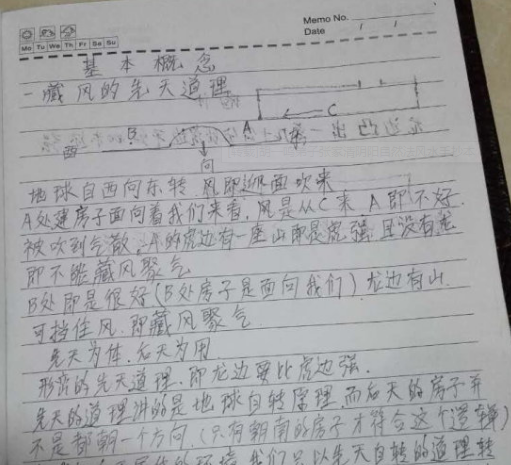 Memo No.
Date / /
Mo Tu We Th Fr Sa Su
基本概念
一藏风的先天道理
C
B A
西
向
地球自西向东转 风即迎面吹来
A处建房子面向着我们来看,风是从C来 A即不好.
被吹到气散.A的虎边有一座山即是虎强且没有龙
即不能藏风聚气
B处即是很好(B处房子是面向我们)龙边有山.
可挡住风.即藏风聚气.
先天为体.后天为用.
形峦的先天道理.即龙边要比虎边强.
先天的道理讲的是地球自转原理 而后天的房子并
不是都朝一个方向.(只有朝南的房子才符合这个逻辑)
的环境 我们只以先天自转的道理转